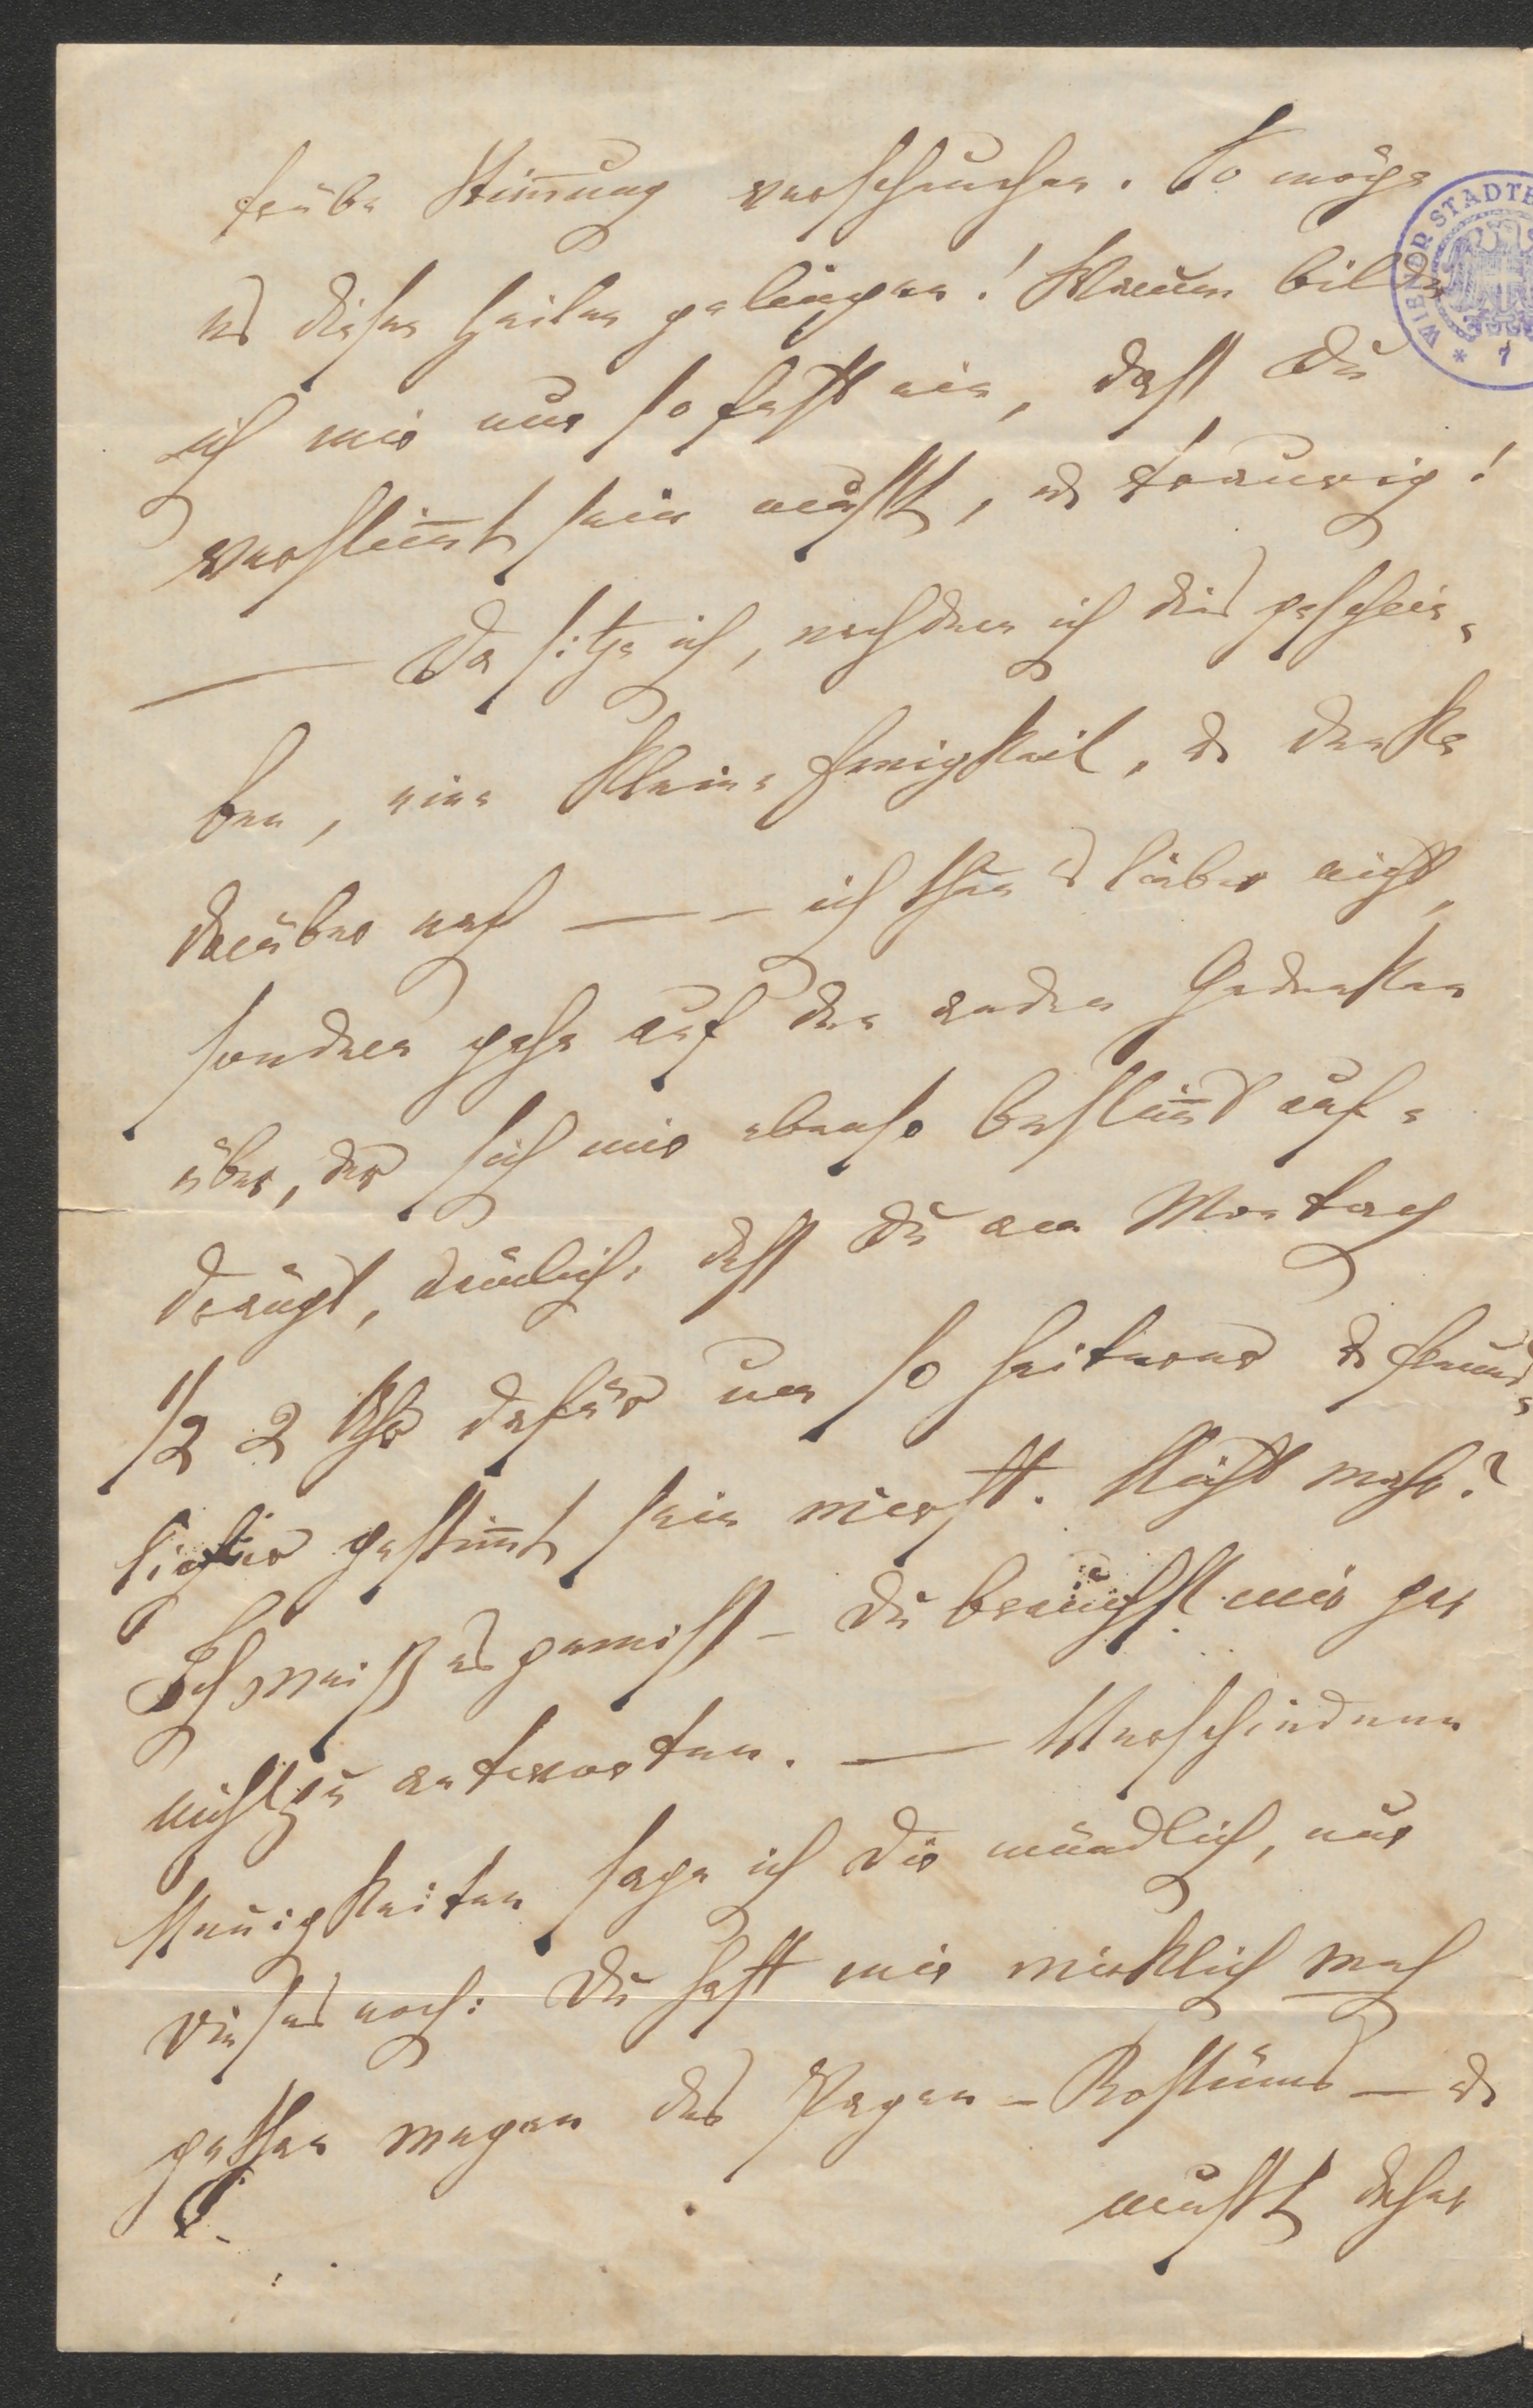 trübe Stim̅ung verscheuchen. So möge
es diesen Zeilen gelingen! Warum bilde
ich mir nur so fest ein, daß Du
verstim̅t sein mußt, & traurig!
— Da sitze ich, nachdem ich dies geschrie-
ben, eine kleine Ewigkeit, & denke
darüber nach —— ich thue es lieber nicht,
sondern gehe auf den andern Gedanken
über, der sich mir ebenso bestim̅t auf-
drängt, nämlich: daß Du am Montag
1/2 2 Uhr dafür um so heiterer & freund-
licher gestim̅t sein wirst. Nicht wahr?
Ich weiß es gewiß – Du brauchst mir gar
nicht zu antworten. — Verschiedene
Neuigkeiten sage ich Dir mündlich, nur
dieses noch: Du hast mir wirklich weh
gethan wegen des Pagen-Kostüms — &
mußt daher
WIENER STADTB
* 7